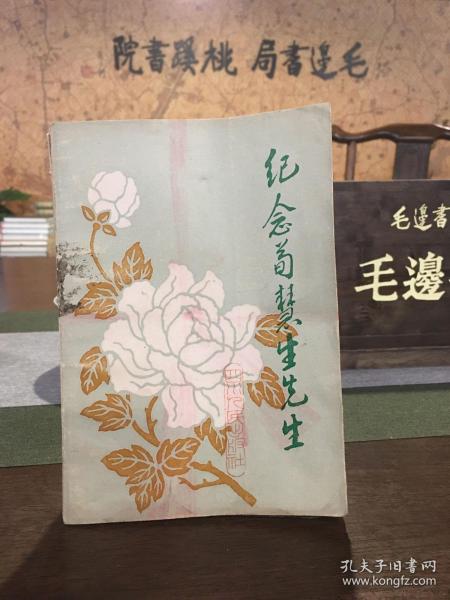 院書蹊桃 局書邊毛
纪念荀慧生先生
四川人民出版社
毛邊書
毛邊
孔夫子旧书网
www.kongfz.com